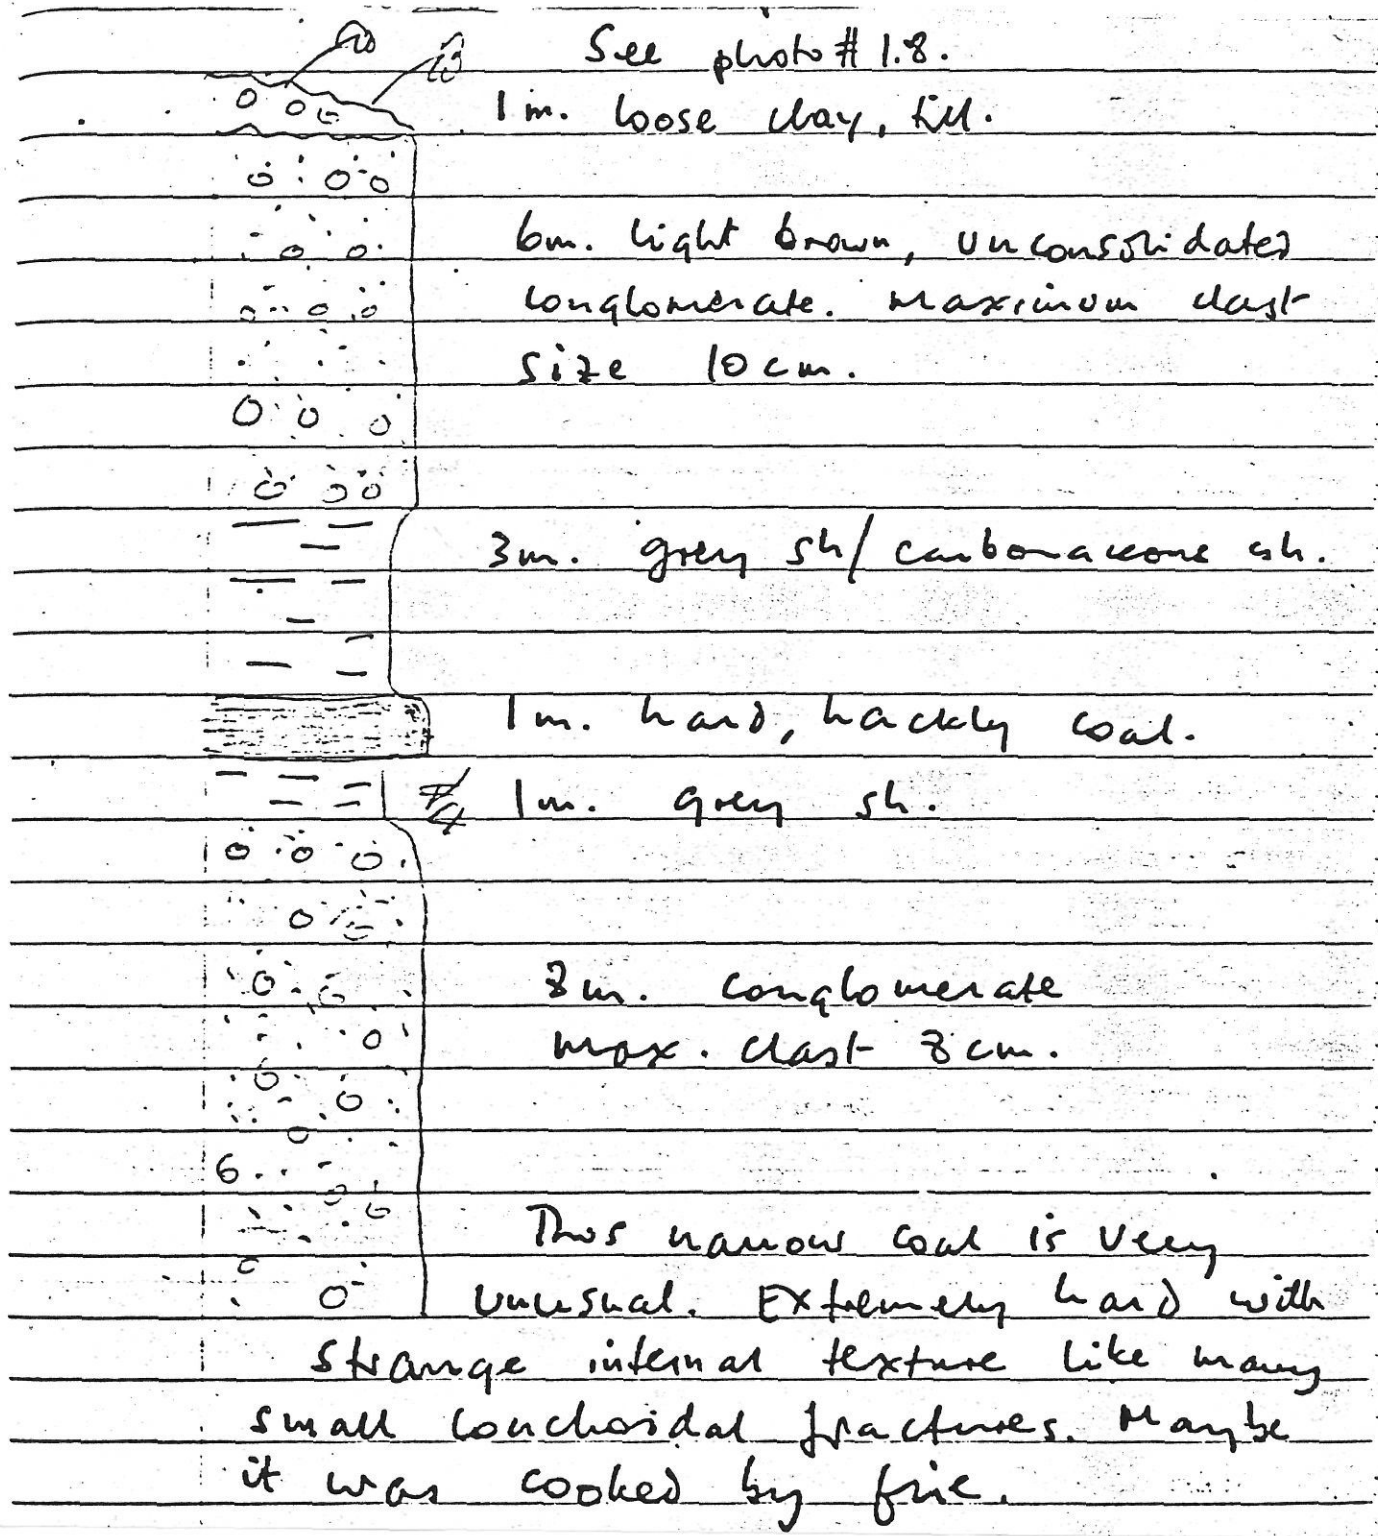 See photo # 1.8.
1m. loose clay, till.
6m. light brown, unconsolidated
conglomerate. Maximum clast
size 10cm.
3m. grey sh/ carbonaceous sh.
1m. hard, hackly coal.
1m. grey sh.
8m. conglomerate
max. clast 8cm.
This narrow coal is very
unusual. Extremely hard with
strange internal texture like many
small conchoidal fractures. Maybe
it was cooked by fire.